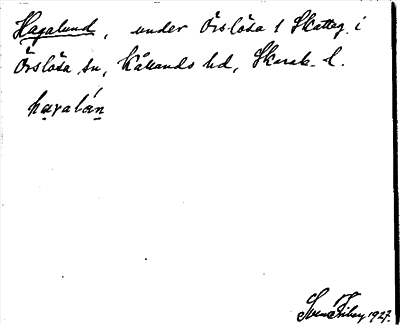 Hagalund, under Örslösa 1 Skatteg. i
Örslösa sn, Kållands hd, Skarab. l.
Sven 1927.